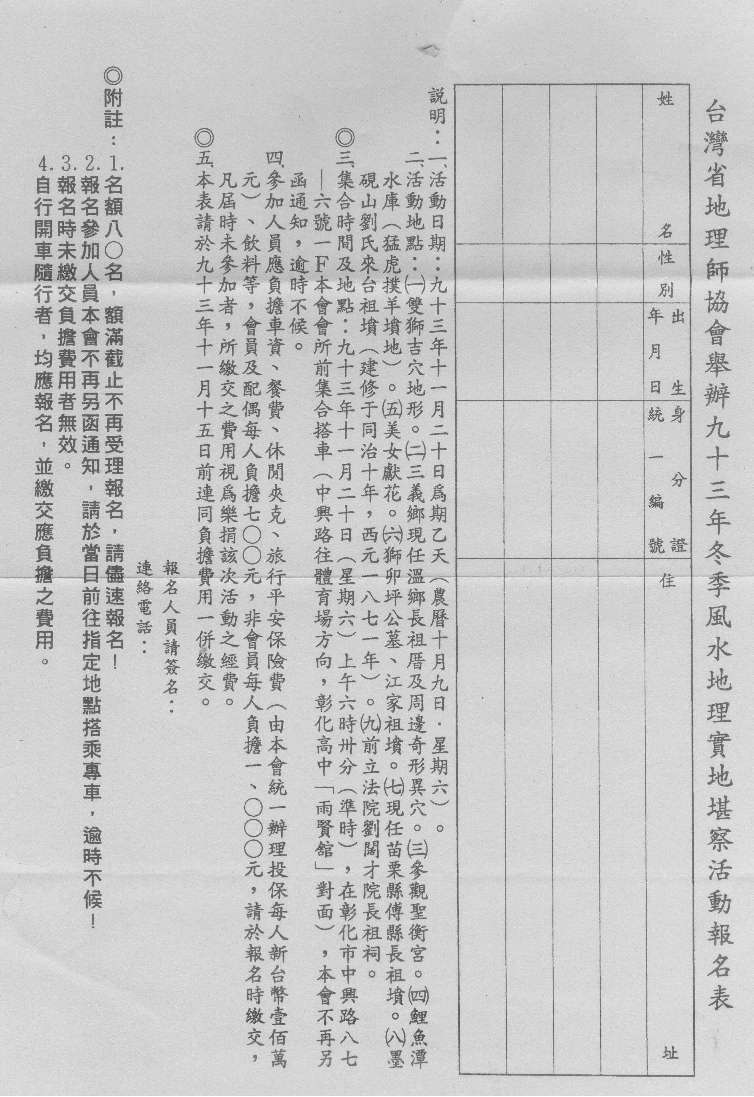 台灣省地理師協會舉辦九十三年冬季風水地理實地堪察活動報名表
姓名
性別
出生
年月日
身分證
統一編號
住址
說明：一、活動日期：九十三年十一月二十日爲期乙天（農曆十月九日．星期六）。
二、活動地點：㈠雙獅吉穴地形。㈡三義鄉現任溫鄉長祖厝及周邊奇形異穴。㈢參觀聖衡宮。㈣鯉魚潭
水庫（猛虎撲羊墳地）。㈤美女獻花。㈥獅卯坪公墓、江家祖墳。㈦現任苗栗縣傅縣長祖墳。㈧墨
硯山劉氏來台祖墳（建修于同治十年，西元一八七一年）。㈨前立法院劉闊才院長祖祠。
◎三、集合時間及地點：九十三年十一月二十日（星期六）上午六時卅分（準時），在彰化市中興路八七
—六號一F本會會所前集合搭車（中興路往體育場方向，彰化高中「雨賢館」對面），本會不再另
函通知，逾時不候。
四、參加人員應負擔車資、餐費、休閒夾克、旅行平安保險費（由本會統一辦理投保每人新台幣壹佰萬
元）、飲料等，會員及配偶每人負擔七〇〇元，非會員每人負擔一、〇〇〇元，請於報名時繳交，
凡屆時未參加者，所繳交之費用視爲樂捐該次活動之經費。
◎五、本表請於九十三年十一月十五日前連同負擔費用一併繳交。
報名人員請簽名：
連絡電話：
◎附註：1.名額八〇名，額滿截止不再受理報名，請儘速報名！
2.報名參加人員本會不再另函通知，請於當日前往指定地點搭乘專車，逾時不候！
3.報名時未繳交負擔費用者無效。
4.自行開車隨行者，均應報名，並繳交應負擔之費用。